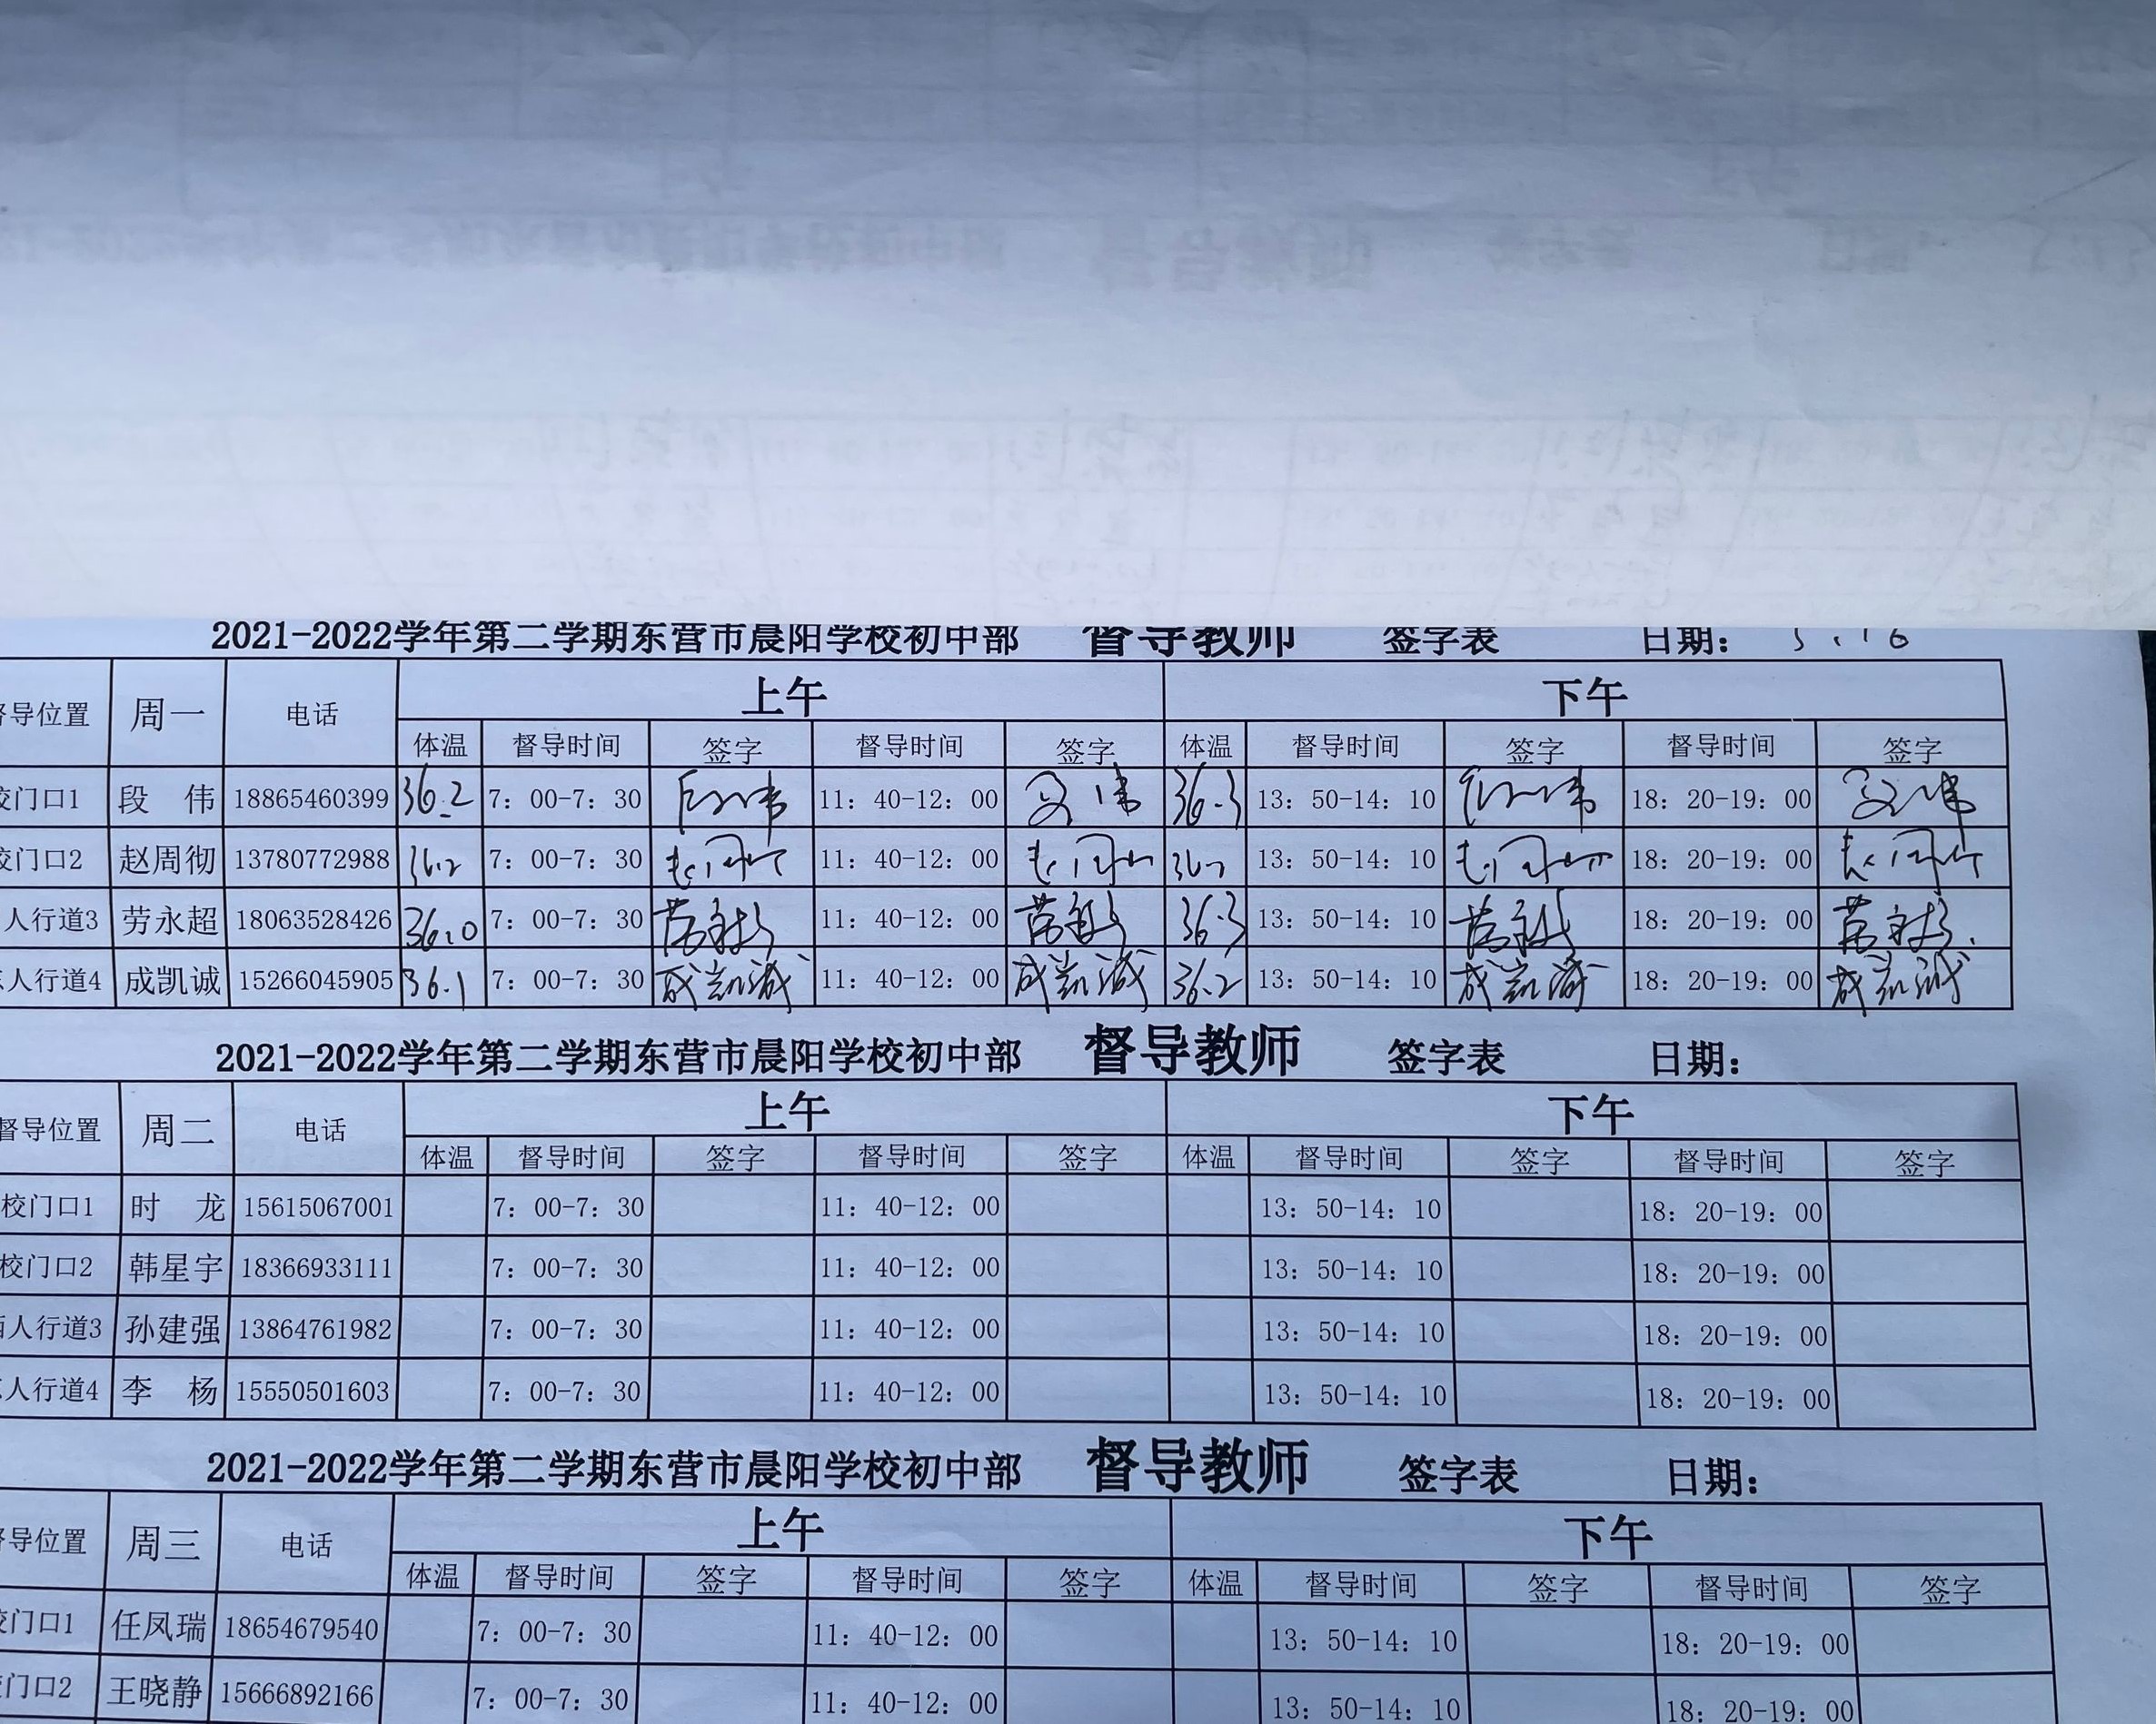 2021-2022学年第二学期东营市晨阳学校初中部 督导教师 签字表 日期: 5.16
导位置 周一 电话 上午 下午
体温 督导时间 签字 督导时间 签字 体温 督导时间 签字 督导时间 签字
门口1 段 伟 18865460399 36.2 7: 00-7: 30 段伟 11: 40-12: 00 段伟 36.3 13: 50-14: 10 段伟 18: 20-19: 00 段伟
门口2 赵周彻 13780772988 36.2 7: 00-7: 30 赵周彻 11: 40-12: 00 赵周彻 13: 50-14: 10 赵周彻 18: 20-19: 00 赵周彻
人行道3 劳永超 18063528426 36.0 7: 00-7: 30 劳永超 11: 40-12: 00 劳永超 36.3 13: 50-14: 10 劳永超 18: 20-19: 00 劳永超
人行道4 成凯诚 15266045905 36.1 7: 00-7: 30 成凯诚 11: 40-12: 00 成凯诚 36.2 13: 50-14: 10 成凯诚 18: 20-19: 00 成凯诚
2021-2022学年第二学期东营市晨阳学校初中部 督导教师 签字表 日期:
督导位置 周二 电话 上午 下午
体温 督导时间 签字 督导时间 签字 体温 督导时间 签字 督导时间 签字
校门口1 时 龙 15615067001 7: 00-7: 30 11: 40-12: 00 13: 50-14: 10 18: 20-19: 00
校门口2 韩星宇 18366933111 7: 00-7: 30 11: 40-12: 00 13: 50-14: 10 18: 20-19: 00
人行道3 孙建强 13864761982 7: 00-7: 30 11: 40-12: 00 13: 50-14: 10 18: 20-19: 00
人行道4 李 杨 15550501603 7: 00-7: 30 11: 40-12: 00 13: 50-14: 10 18: 20-19: 00
2021-2022学年第二学期东营市晨阳学校初中部 督导教师 签字表 日期:
导位置 周三 电话 上午 下午
体温 督导时间 签字 督导时间 签字 体温 督导时间 签字 督导时间 签字
门口1 任凤瑞 18654679540 7: 00-7: 30 11: 40-12: 00 13: 50-14: 10 18: 20-19: 00
门口2 王晓静 15666892166 7: 00-7: 30 11: 40-12: 00 13: 50-14: 10 18: 20-19: 00